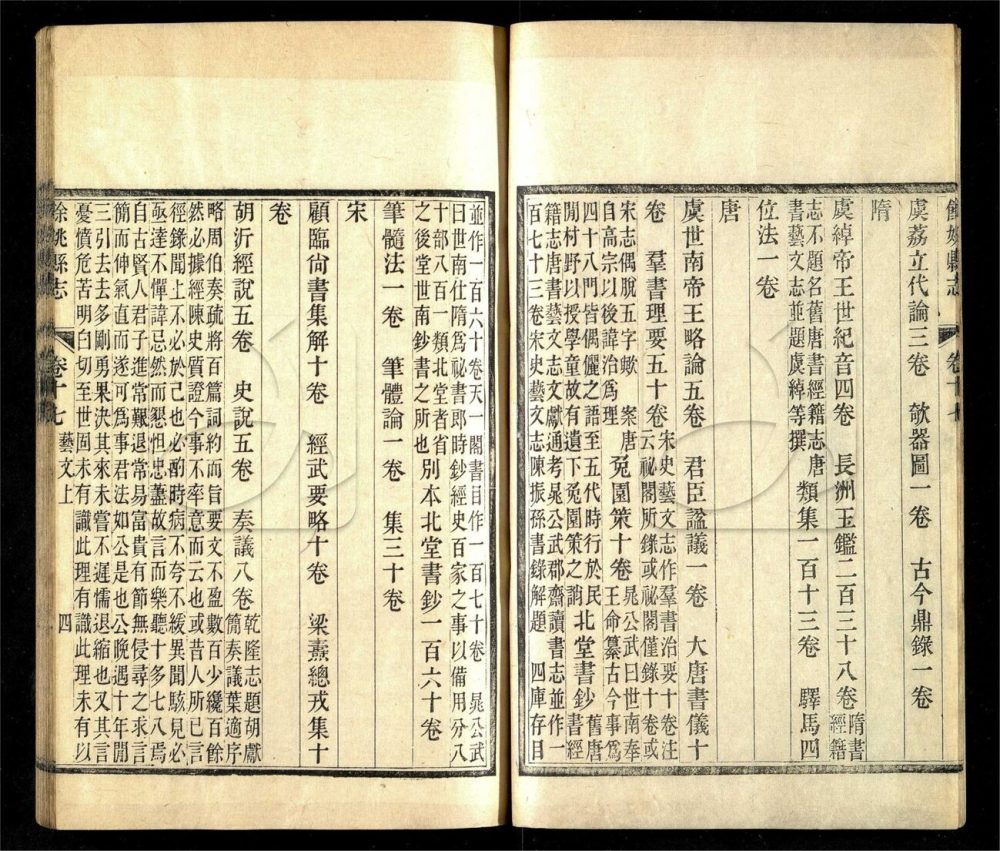 餘姚縣志 卷十七
虞荔立代論三卷 欹器圖一卷 古今鼎錄一卷
隋
虞綽帝王世紀音四卷 長洲玉鑑二百三十八卷 隋書經籍
志不題名舊唐書經籍志唐書藝文志並題虞綽等撰 類集一百十三卷 驛馬四
位法一卷
唐
虞世南帝王略論五卷 君臣諡議一卷 大唐書儀十
卷 羣書理要五十卷 宋史藝文志作羣書治要十卷注云祕閣所錄或祕閣僅錄十卷或
宋志偶脫五字歟 案唐自高宗以後諱治爲理 兎園策十卷 晁公武曰世南奉王命纂古今事爲
四十八門皆偶儷之語至五代時行於民閒村野以授學童故有遺下兎園策之誚 北堂書鈔 舊唐書經
籍志唐書藝文志文獻通考晁公武郡齋讀書志並作一百七十三卷宋史藝文志陳振孫書錄解題 四庫存目
並作一百六十卷天一閣書目作一百七十卷 晁公武曰世南仕隋爲祕書郎時鈔經史百家之事以備用分八
十部八百一類北堂者省之後堂世南鈔書之所也 別本北堂書鈔一百六十卷
筆髓法一卷 筆體論一卷 集三十卷
宋
顧臨尙書集解十卷 經武要略十卷 梁燾總戎集十
卷
胡沂經說五卷 史說五卷 奏議八卷 乾隆志題胡獻簡奏議葉適序
略周伯奏疏將百篇詞約而旨要文不盈數百少纔百餘然必據經陳史質證今事不率意而云也或昔人所已言
徑錄聞上不必於己也必酌時病不夸不緩異聞駭見必亟達不憚諱忌然而懇怛忠藎故言而樂聽十多七八焉
自古賢人君子進常艱退常易富貴有節無侵尋之求言簡而伸氣直而遂可爲事君法如公是也公晚遇十年閒
三引去去多剛勇果決其來未嘗不遲懦退縮也又其言憂憤危苦明白切至世固未有識此理有識此理未有以
餘姚縣志 卷十七 藝文上 四